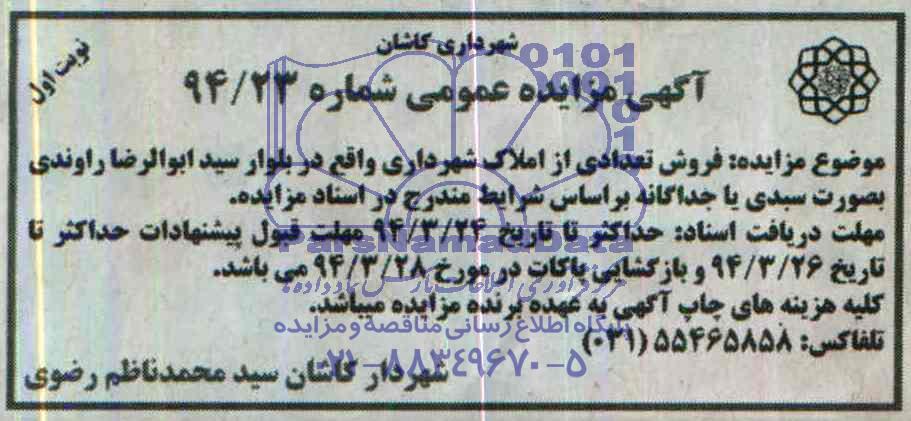 شهرداری کاشان
نوبت اول
آگهی مزایده عمومی شماره ۹۴/۲۳
موضوع مزایده: فروش تعدادی از املاک شهرداری واقع در بلوار سید ابوالرضا راوندی
بصورت سبدی یا جداگانه براساس شرایط مندرج در اسناد مزایده.
مهلت دریافت اسناد: حداکثر تا تاریخ ۹۴/۳/۲۴ مهلت قبول پیشنهادات حداکثر تا
تاریخ ۹۴/۳/۲۶ و بازگشایی پاکات در مورخ ۹۴/۳/۲۸ می باشد.
کلیه هزینه های چاپ آگهی به عهده برنده مزایده میباشد.
تلفاکس: ۵۵۴۶۵۸۵۸ (۰۳۱)
شهردار کاشان سید محمدناظم رضوی
0101
0001
ParsNamadData
پایگاه اطلاع رسانی مناقصه و مزایده
۰۲۱-۸۸۳۴۹۶۷۰-۵